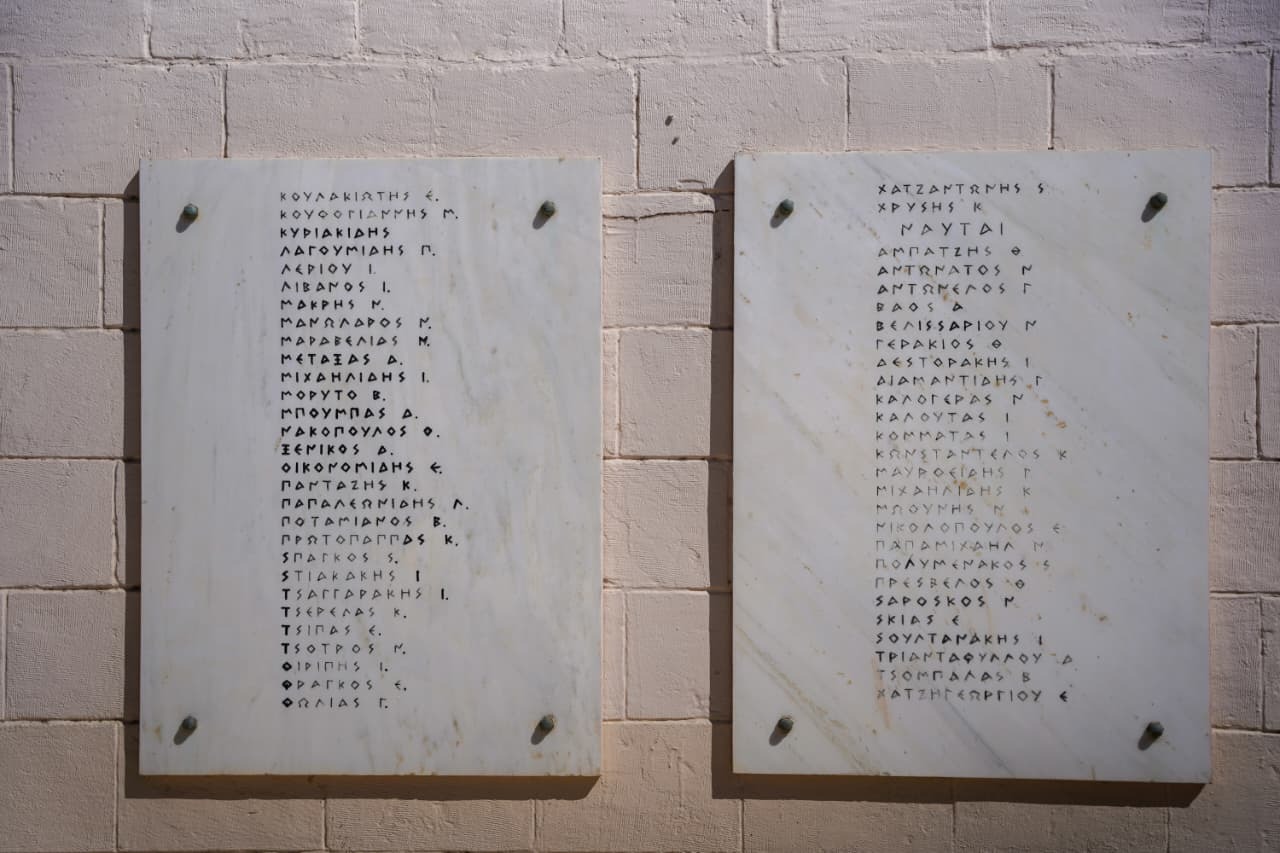 ΚΟΥΛΑΚΙΩΤΗΣ Ε.
ΚΟΥΦΟΓΙΑΝΝΗΣ Μ.
ΚΥΡΙΑΚΙΔΗΣ
ΛΑΓΟΥΜΙΔΗΣ Π.
ΛΕΡΙΟΥ Ι.
ΛΙΒΑΝΟΣ Ι.
ΜΑΚΡΗΣ Ν.
ΜΑΝΩΛΑΡΟΣ Ν.
ΜΑΡΑΒΕΛΙΑΣ Ν.
ΜΕΤΑΞΑΣ Δ.
ΜΙΧΑΗΛΙΔΗΣ Ι.
ΜΟΡΥΤΟ Β.
ΜΠΟΥΜΠΑΣ Δ.
ΝΑΚΟΠΟΥΛΟΣ Θ.
ΞΕΝΙΚΟΣ Δ.
ΟΙΚΟΝΟΜΙΔΗΣ Ε.
ΠΑΝΤΑΖΗΣ Κ.
ΠΑΠΑΛΕΩΝΙΔΗΣ Λ.
ΠΟΤΑΜΙΑΝΟΣ Β.
ΠΡΩΤΟΠΑΠΠΑΣ Κ.
ΣΠΑΓΚΟΣ Σ.
ΣΤΙΑΚΑΚΗΣ Ι
ΤΣΑΓΓΑΡΑΚΗΣ Ι.
ΤΣΕΡΕΛΑΣ Κ.
ΤΣΙΠΑΣ Ε.
ΤΣΟΤΡΟΣ Ν.
ΦΙΡΙΠΗΣ Ι.
ΦΡΑΓΚΟΣ Ε.
ΦΩΛΙΑΣ Γ.
ΧΑΤΖΑΝΤΩΝΗΣ Σ
ΧΡΥΣΗΣ Κ
ΝΑΥΤΑΙ
ΑΜΠΑΤΖΗΣ Θ
ΑΝΤΩΝΑΤΟΣ Ν
ΑΝΤΩΝΕΛΟΣ Γ
ΒΑΟΣ Δ
ΒΕΛΙΣΣΑΡΙΟΥ Ν
ΓΕΡΑΚΙΟΣ Θ
ΔΕΣΤΟΡΑΚΗΣ Ι
ΔΙΑΜΑΝΤΙΔΗΣ Γ
ΚΑΛΟΓΕΡΑΣ Ν
ΚΑΛΟΥΤΑΣ Ι
ΚΟΜΜΑΤΑΣ Ι
ΚΩΝΣΤΑΝΤΕΛΟΣ Κ
ΜΑΥΡΟΕΙΔΗΣ Γ
ΜΙΧΑΗΛΙΔΗΣ Κ
ΜΩΟΥΝΗΣ Ν
ΝΙΚΟΛΟΠΟΥΛΟΣ Ε
ΠΑΠΑΜΙΧΑΗΛ Ν
ΠΟΛΥΜΕΝΑΚΟΣ Σ
ΠΡΕΣΒΕΛΟΣ Θ
ΣΑΡΟΣΚΟΣ Ν
ΣΚΙΑΣ Ε
ΣΟΥΛΤΑΝΑΚΗΣ Ι
ΤΡΙΑΝΤΑΦΥΛΛΟΥ Δ
ΤΣΟΜΠΑΛΑΣ Β
ΧΑΤΖΗΓΕΩΡΓΙΟΥ Ε